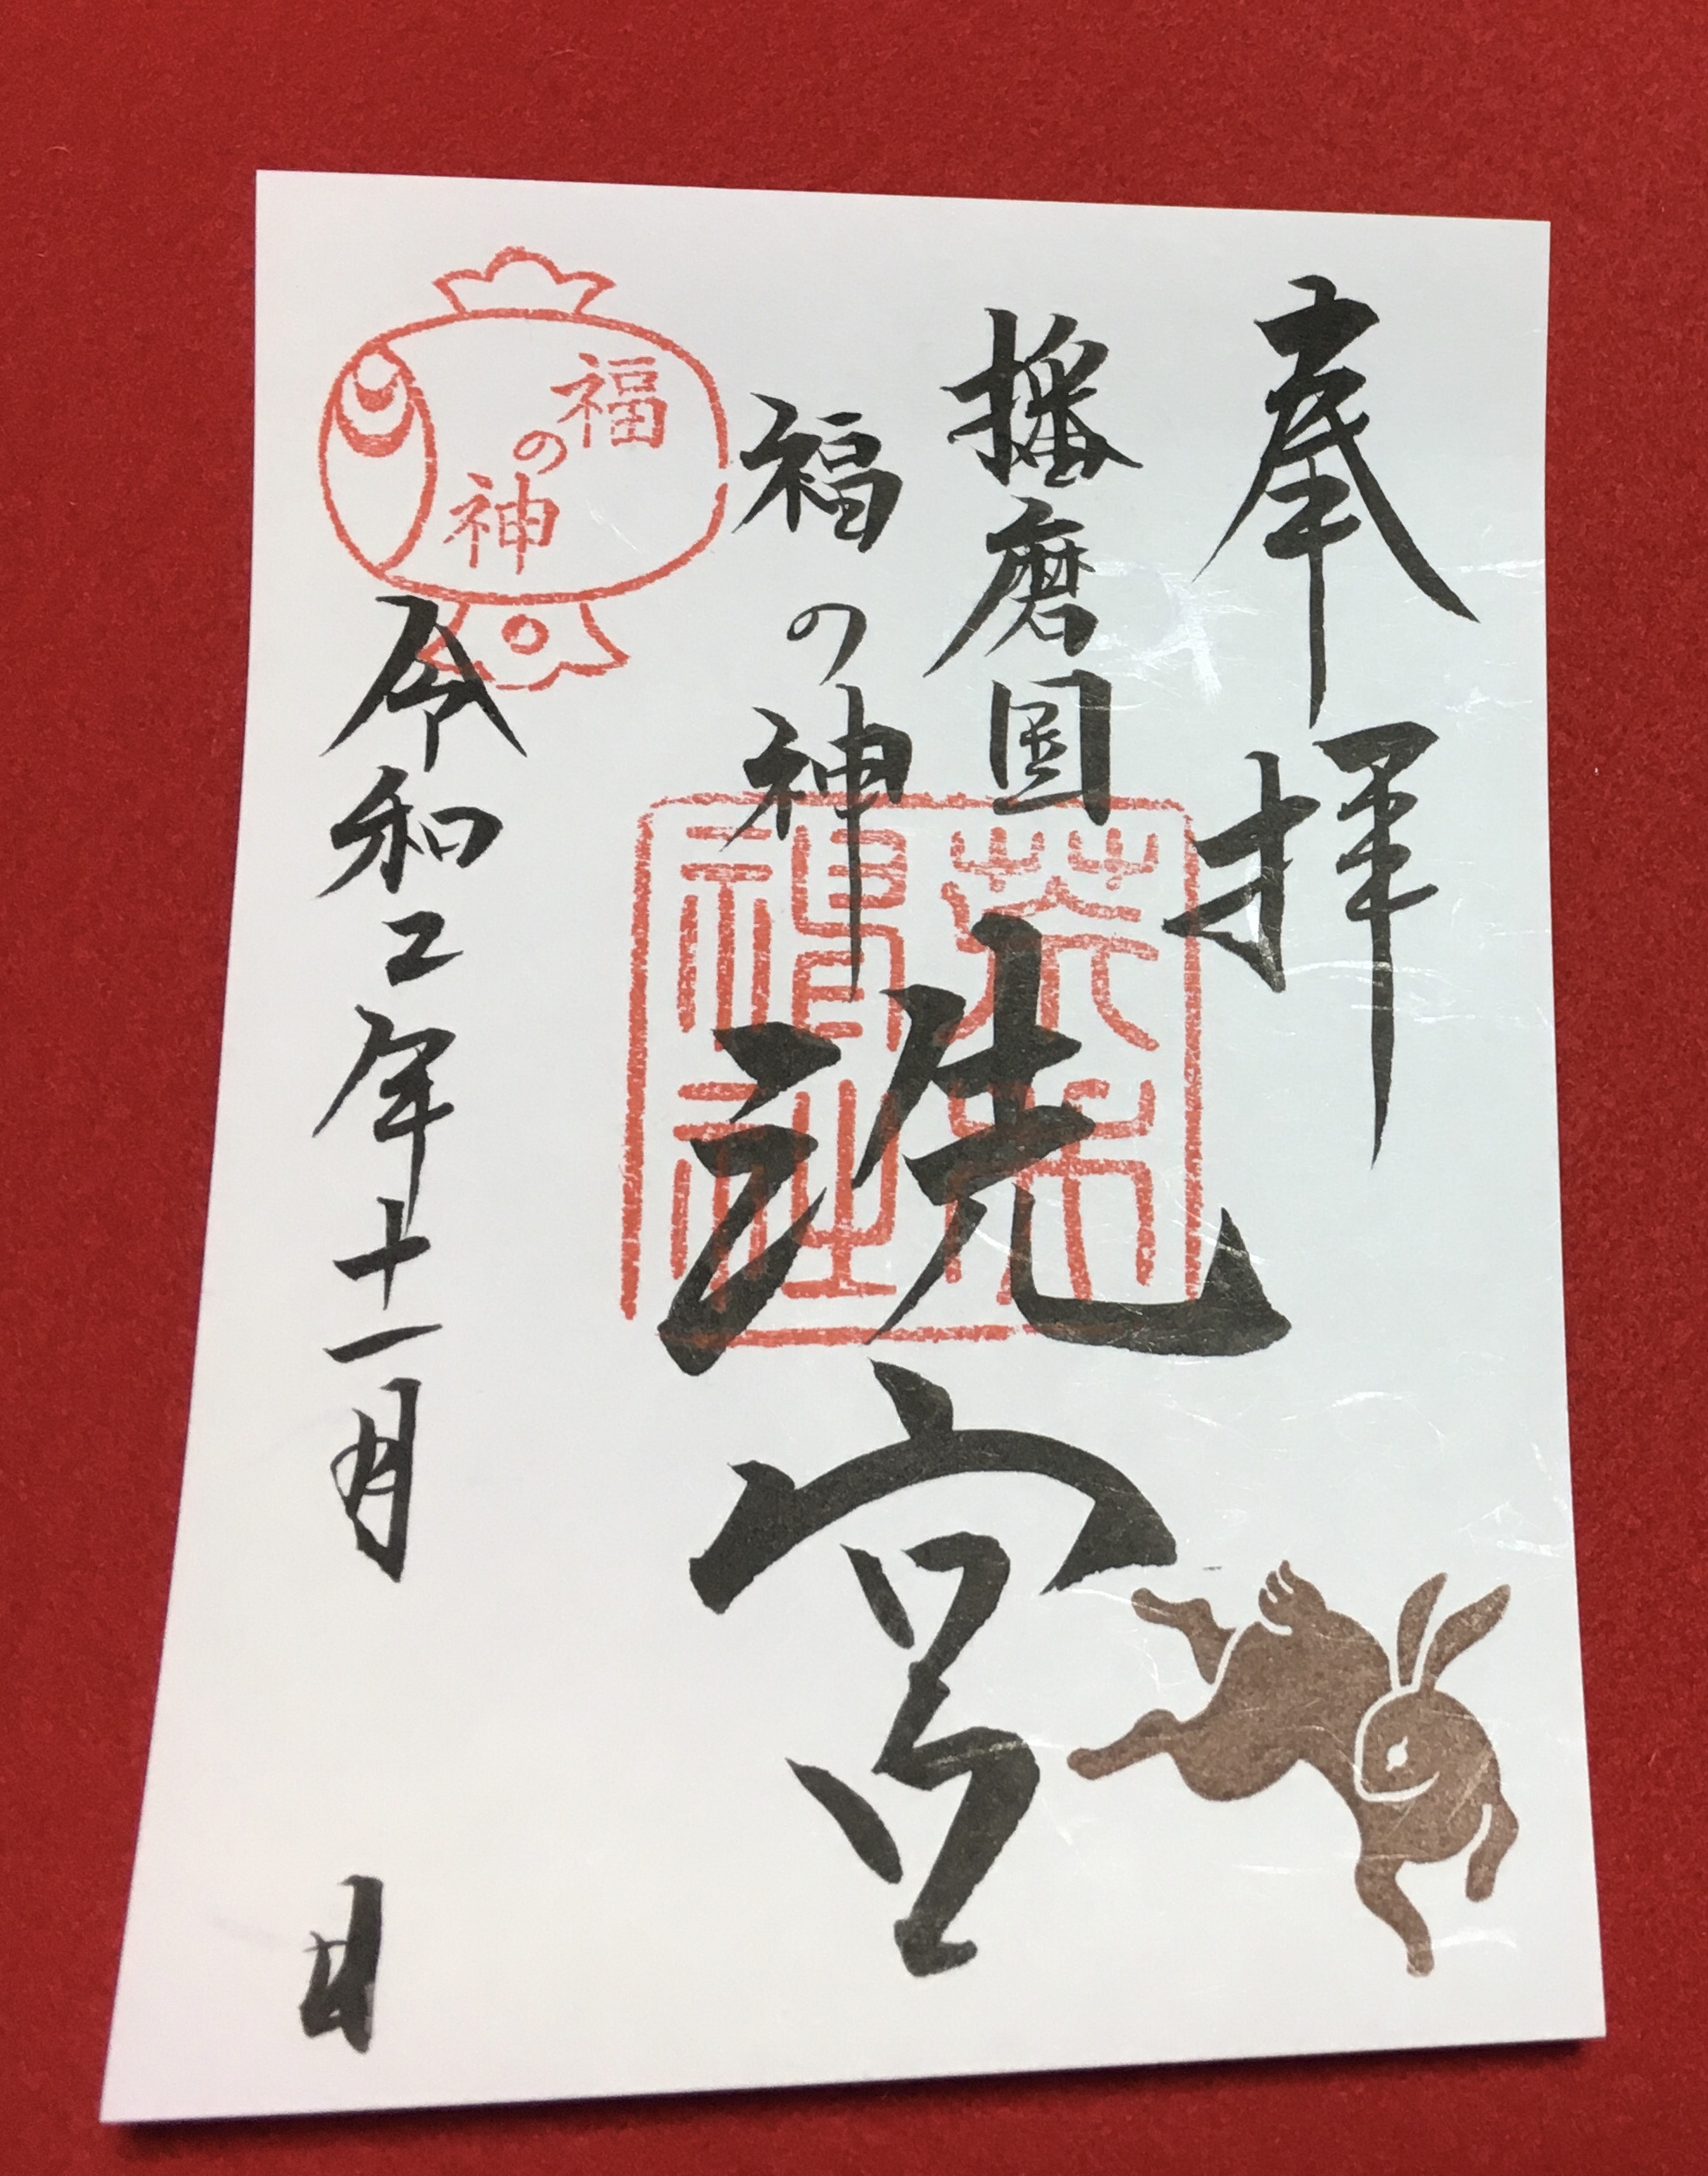 奉拝
播磨国
福の神
洗宮
荒井
神社
福の神
令和二年十一月　日